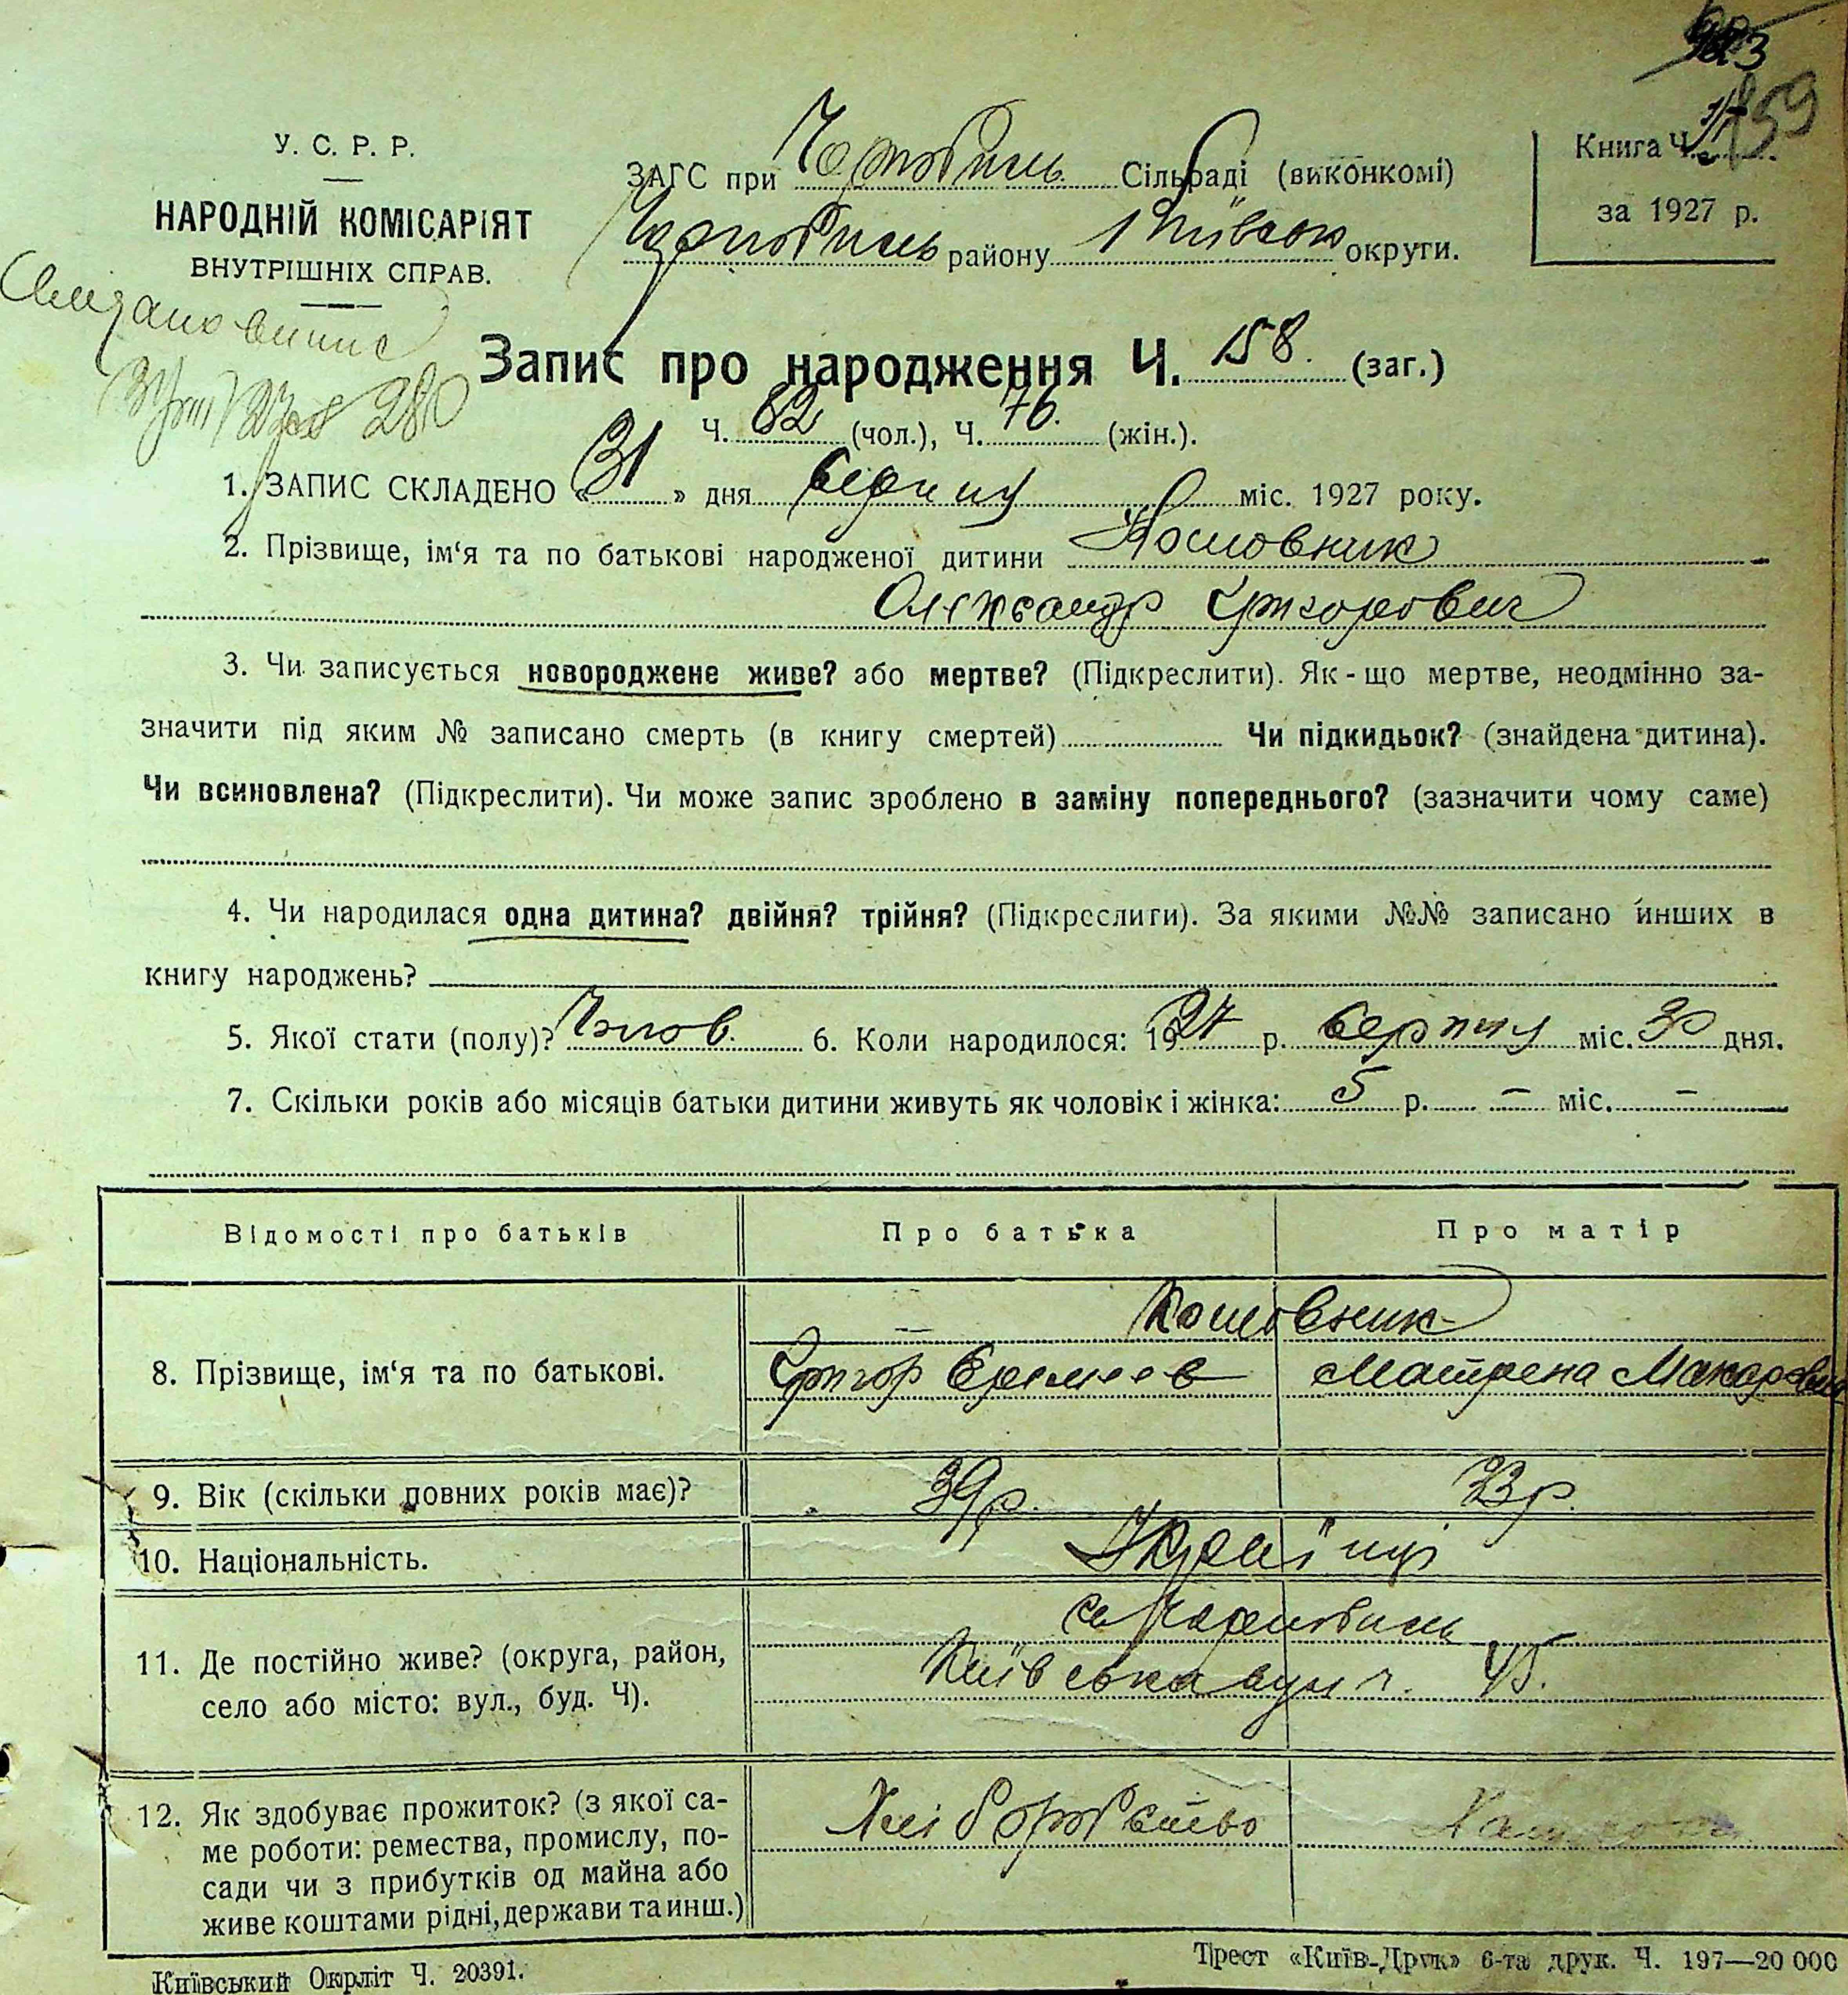 У. С. Р. Р.
НАРОДНІЙ КОМІСАРІЯТ
ВНУТРІШНІХ СПРАВ.
ЗАГС при Чорнобиль Сільраді (виконкомі)
Чорнобиль району Київськ округи.
Книга Ч.
за 1927 р.
159
Видано випис
Запис про народження Ч. 158. (заг.)
Ч. 82 (чол.), Ч. 76. (жін.).
1. ЗАПИС СКЛАДЕНО « 31 » дня серпня міс. 1927 року.
2. Прізвище, ім‘я та по батькові народженої дитини
Олександр Григорович
3. Чи записується новороджене живе? або мертве? (Підкреслити). Як-що мертве, неодмінно за-
значити під яким № записано смерть (в книгу смертей) Чи підкидьок? (знайдена дитина).
Чи всиновлена? (Підкреслити). Чи може запис зроблено в заміну попереднього? (зазначити чому саме)
4. Чи народилася одна дитина? двійня? трійня? (Підкреслити). За якими №№ записано инших в
книгу народжень?
5. Якої стати (полу)? Чолов. 6. Коли народилося: 1927 р. серпня міс. 30 дня.
7. Скільки років або місяців батьки дитини живуть як чоловік і жінка: 5 р. — міс. —
Відомості про батьків
Про батька
Про матір
8. Прізвище, ім‘я та по батькові.
Григор Еремеев
Матрена Макаровна
9. Вік (скільки повних років має)?
39 р.
33 р.
10. Національність.
Українці
11. Де постійно живе? (округа, район,
село або місто: вул., буд. Ч).
Чорнобиль
Київська вул. 45.
12. Як здобуває прожиток? (з якої са-
ме роботи: ремества, промислу, по-
сади чи з прибутків од майна або
живе коштами рідні, держави та инш.)
Хліборобство
Київський Окрліт Ч. 20391.
Трест «Київ-Друк» 6-та друк. Ч. 197—20 000